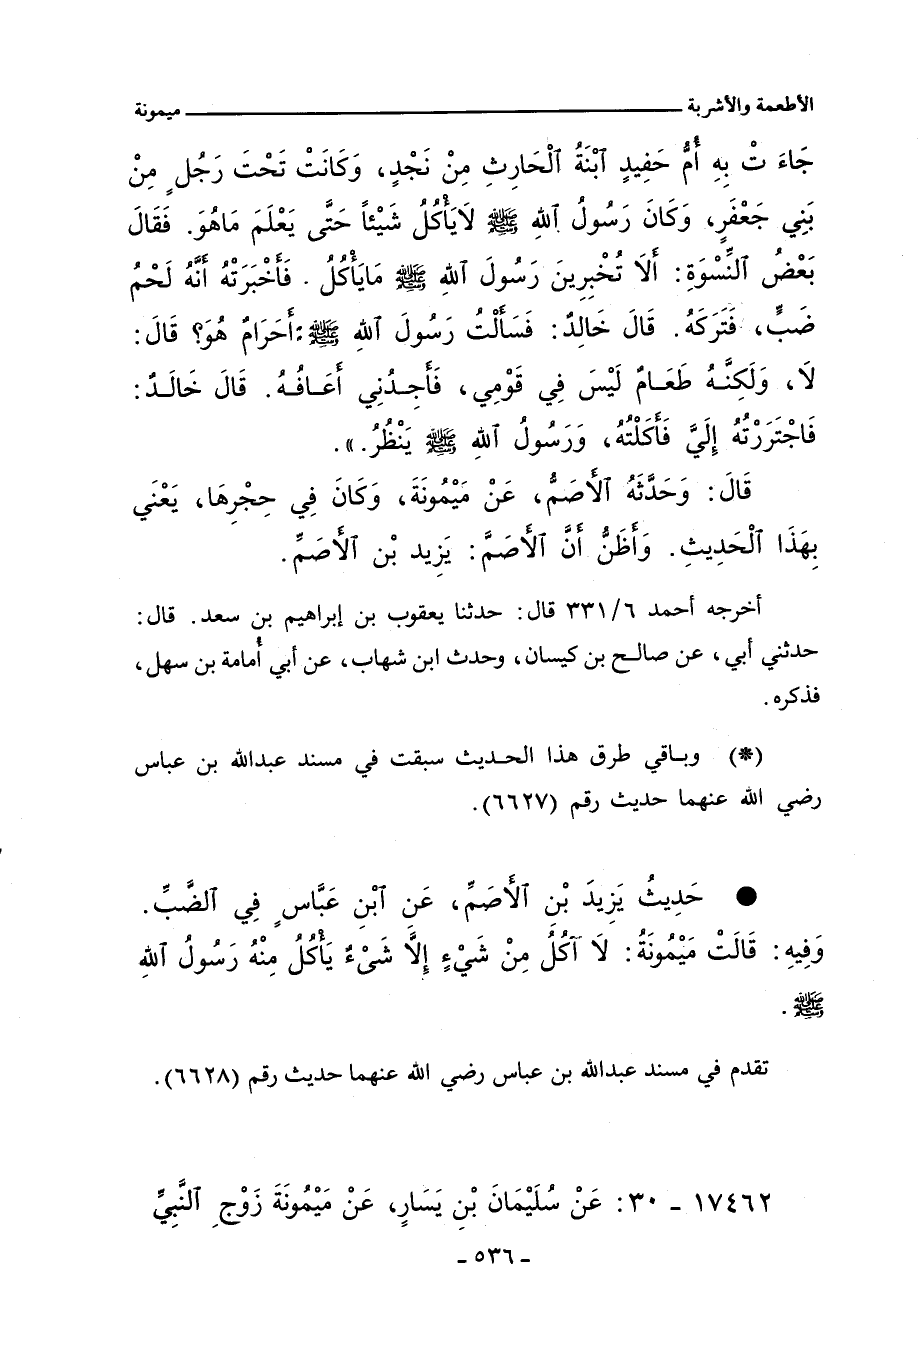 الأطعمة والأشربة ــــــــــ ميمونة
جَاءَ تْ بِهِ أُمُّ حَفِيدٍ ٱبْنَةُ ٱلْحَارِثِ مِنْ نَجْدٍ، وَكَانَتْ تَحْتَ رَجُلٍ مِنْ
بَنِي جَعْفَرٍ، وَكَانَ رَسُولُ ٱللهِ ﷺ لَايَأْكُلُ شَيْئاً حَتَّى يَعْلَمَ مَاهُوَ. فَقَالَ
بَعْضُ ٱلنِّسْوَةِ: أَلَا تُخْبِرِينَ رَسُولَ ٱللهِ ﷺ مَايَأْكُلُ. فَأَخْبَرَتْهُ أَنَّهُ لَحْمُ
ضَبٍّ، فَتَرَكَهُ. قَالَ خَالِدٌ: فَسَأَلْتُ رَسُولَ ٱللهِ ﷺ: أَحَرَامٌ هُوَ؟ قَالَ:
لَا، وَلَكِنَّهُ طَعَامٌ لَيْسَ فِي قَوْمِي، فَأَجِدُنِي أَعَافُهُ. قَالَ خَالَدٌ:
فَاجْتَرَرْتُهُ إِلَيَّ فَأَكَلْتُهُ، وَرَسُولُ ٱللهِ ﷺ يَنْظُرُ.».
قَالَ: وَحَدَّثَهُ ٱلْأَصَمُّ، عَنْ مَيْمُونَةَ، وَكَانَ فِي حِجْرِهَا، يَعْنَي
بِهَذَا ٱلْحَدِيثِ. وَأَظَنُّ أَنَّ ٱلْأَصَمَّ: يَزِيد بْن ٱلْأَصَمِّ.
أخرجه أحمد ٣٣١/٦ قال: حدثنا يعقوب بن إبراهيم بن سعد. قال:
حدثني أبي، عن صالح بن كيسان، وحدث ابن شهاب، عن أبي أُمامة بن سهل،
فذكره.
(*) وباقي طرق هذا الحديث سبقت في مسند عبدالله بن عباس
رضي الله عنهما حديث رقم (٦٦٢٧).
● حَدِيثُ يَزِيدَ بْنِ ٱلْأَصَمِّ، عَنِ ٱبْنِ عَبَّاسٍ فِي ٱلضَّبِّ.
وَفِيهِ: قَالَتْ مَيْمُونَةُ: لَا آكُلُ مِنْ شَيْءٍ إِلَّا شَىْءٌ يَأْكُلُ مِنْهُ رَسُولُ ٱللهِ
ﷺ.
تقدم في مسند عبدالله بن عباس رضي الله عنهما حديث رقم (٦٦٢٨).
١٧٤٦٢ - ٣٠: عَنْ سُلَيْمَانَ بْنِ يَسَارٍ، عَنْ مَيْمُونَةَ زَوْجِ ٱلنَّبِيِّ
- ٥٣٦ -